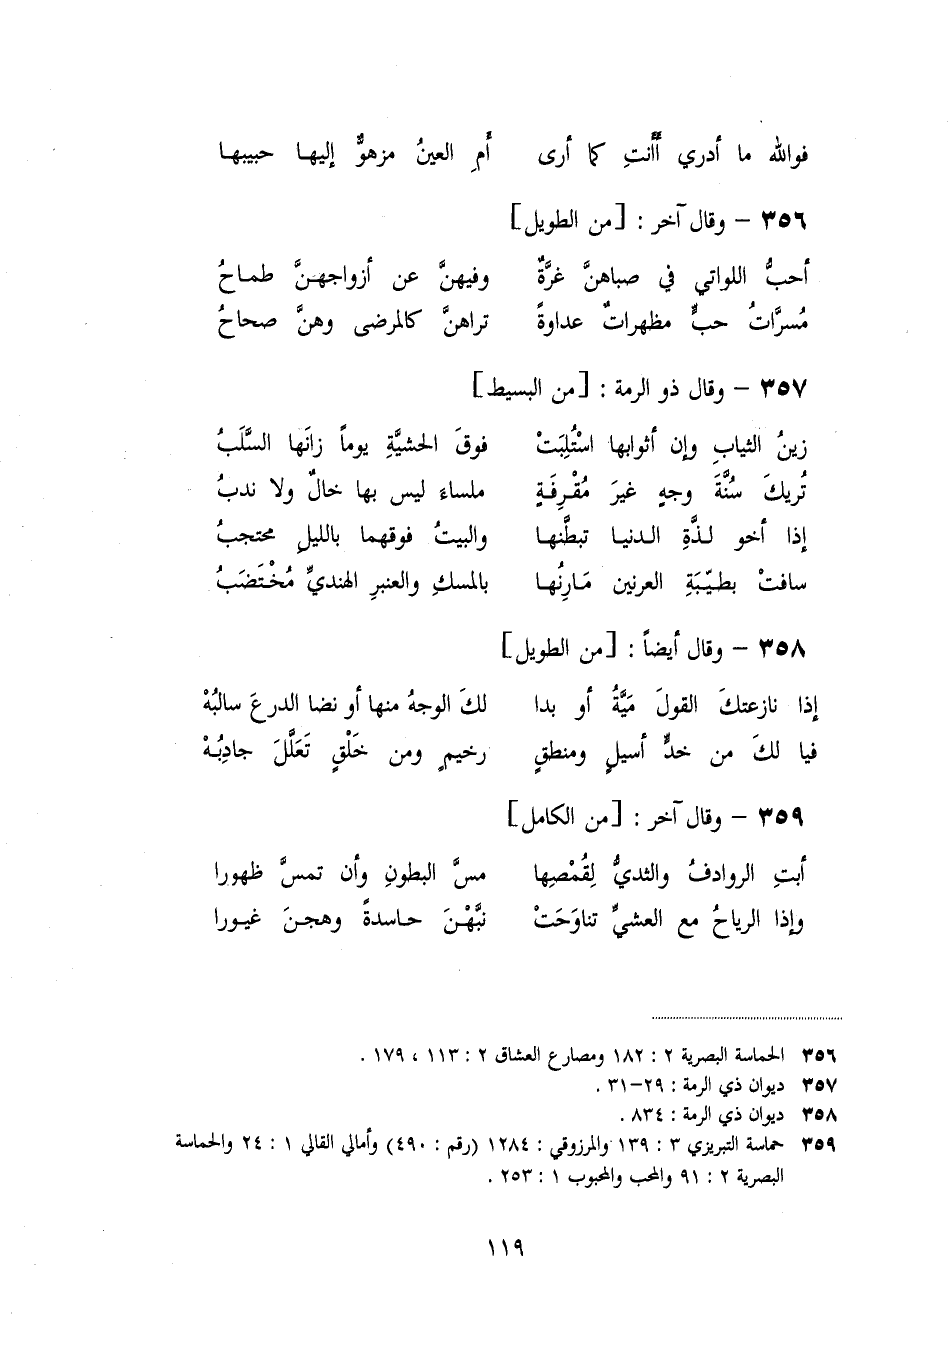 فوالله ما أدري أأنتِ كما أرى أمِ العينُ مزهوٌّ إليها حبيبها
٣٥٦ – وقال آخر : [من الطويل]
أحبُّ اللواتي في صباهنَّ غرَّةٌ وفيهنَّ عن أزواجهنَّ طماحُ
مُسرَّاتُ حبٍّ مظهراتٌ عداوةً تراهنَّ كالمرضى وهنَّ صحاحُ
٣٥٧ – وقال ذو الرمة : [من البسيط]
زينُ الثيابِ وإن أثوابها اسْتُلِبَتْ فوقَ الحشيَّةِ يوماً زانَها السَّلَبُ
تُريكَ سُنَّةَ وجهٍ غيرَ مُقْرِفَةٍ ملساءَ ليس بها خالٌ ولا ندبُ
إذا أخو لذَّةِ الدنيا تبطَّنها والبيتُ فوقهما بالليلِ محتجبُ
سافتْ بطيّبَةِ العرنين مَارِنُها بالمسكِ والعنبرِ الهنديِّ مُخْتَضَبُ
٣٥٨ – وقال أيضاً : [من الطويل]
إذا نازعتكَ القولَ مَيَّةُ أو بدا لكَ الوجهُ منها أو نضا الدرعَ سالبُهْ
فيا لكَ من خدٍّ أسيلٍ ومنطقٍ رخيمٍ ومن خَلْقٍ تَعَلَّلَ جادِبُهْ
٣٥٩ – وقال آخر : [من الكامل]
أبتِ الروادفُ والثديُّ لِقُمْصِها مسَّ البطونِ وأن تمسَّ ظهورا
وإذا الرياحُ مع العشيِّ تناوَحَتْ نبَّهْنَ حاسدةً وهجنَ غيورا
٣٥٦ الحماسة البصرية ٢ : ١٨٢ ومصارع العشاق ٢ : ١١٣ ، ١٧٩ .
٣٥٧ ديوان ذي الرمة : ٢٩–٣١ .
٣٥٨ ديوان ذي الرمة : ٨٣٤ .
٣٥٩ حماسة التبريزي ٣ : ١٣٩ والمرزوقي : ١٢٨٤ (رقم : ٤٩٠) وأمالي القالي ١ : ٢٤ والحماسة
البصرية ٢ : ٩١ والمحب والمحبوب ١ : ٢٥٣ .
١١٩